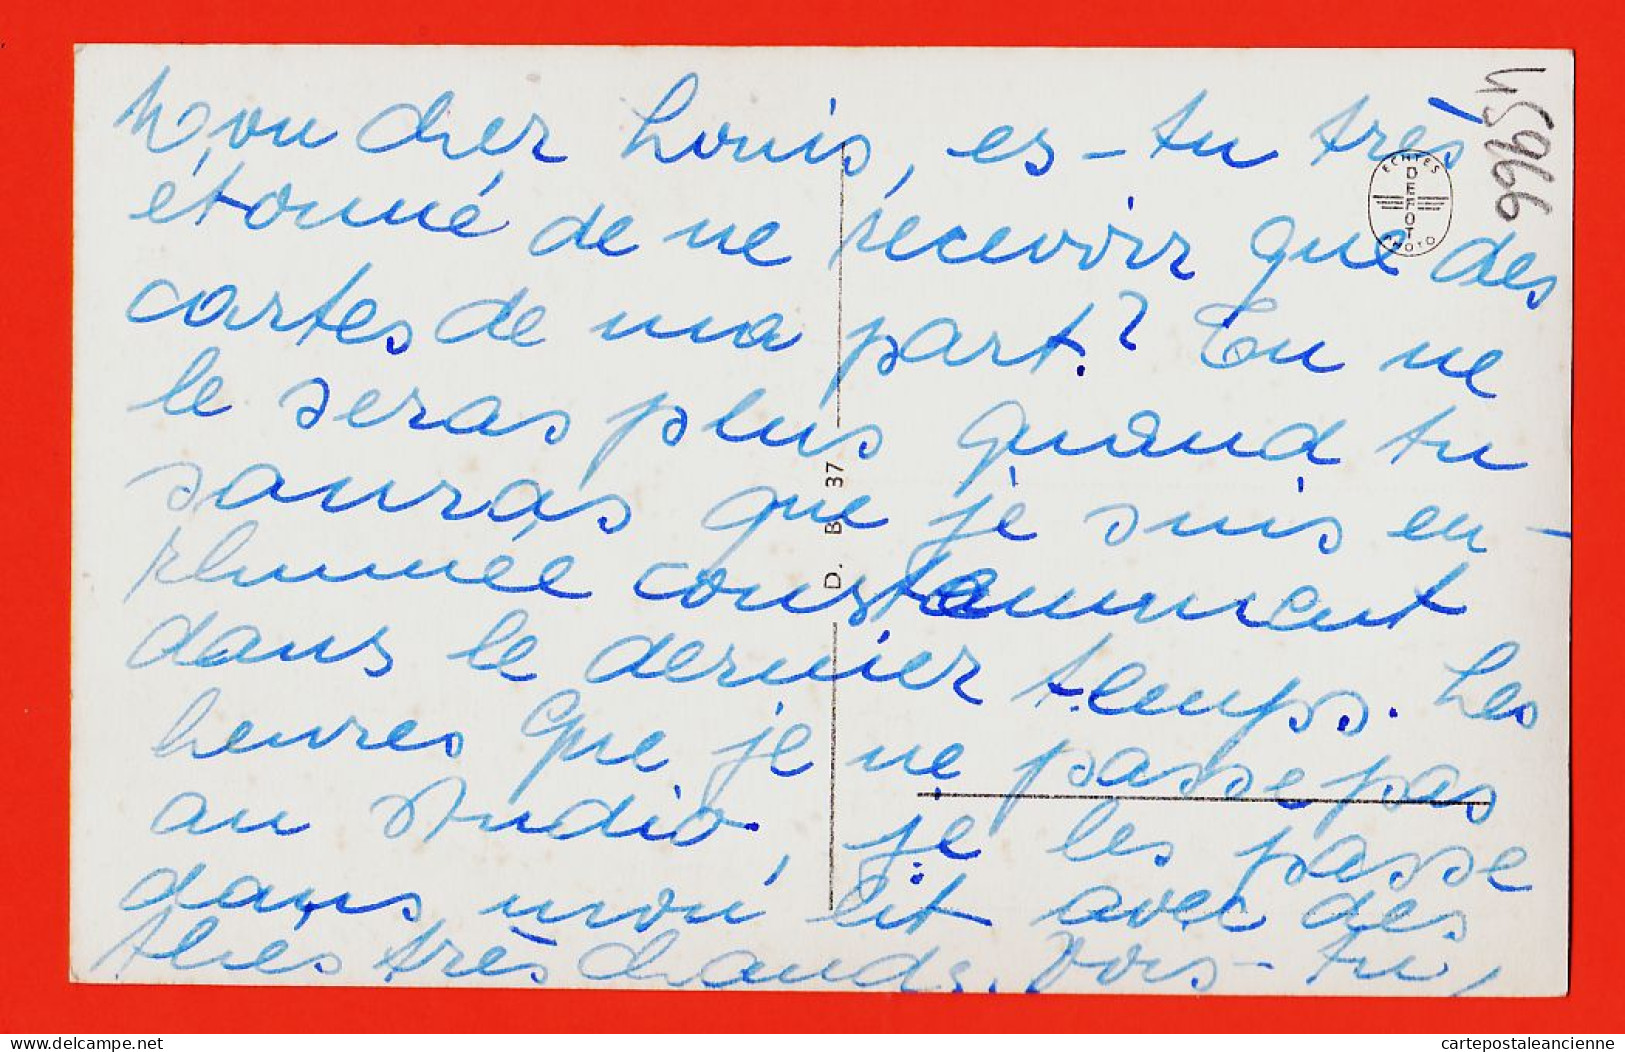 Mon cher Louis, es-tu très
étonné de ne recevoir que des
cartes de ma part? Tu ne
le seras plus quand tu
sauras que je suis en-
rhumée constamment
dans le dernier temps. Les
heures que je ne passe pas
au studio, je les passe
dans mon lit avec des
thés très chauds. Vois-tu,
45966
ECHTES
DEFOT
PHOTO
D. B 37
delcampe.net
cartepostaleancienne